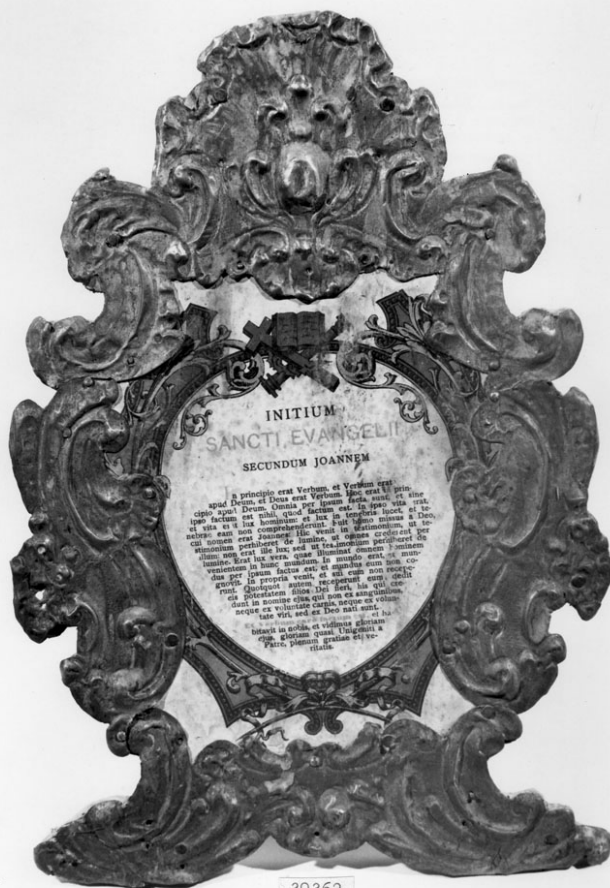 INITIUM
SANCTI EVANGELII
SECUNDUM JOANNEM
n principio erat Verbum, et Verbum erat
apud Deum, et Deus erat Verbum. Hoc erat in prin-
cipio apud Deum. Omnia per ipsum facta sunt, et sine
ipso factum est nihil, quod factum est. In ipso vita erat,
et vita erat lux hominum: et lux in tenebris lucet, et te-
nebrae eam non comprehenderunt. Fuit homo missus a Deo,
cui nomen erat Joannes. Hic venit in testimonium, ut te-
stimonium perhiberet de lumine, ut omnes crederent per
illum: non erat ille lux; sed ut testimonium perhiberet de
lumine. Erat lux vera, quae illuminat omnem hominem
venientem in hunc mundum. In mundo erat, et mun-
dus per ipsum factus est, et mundus eum non co-
gnovit. In propria venit, et sui eum non recepe-
runt. Quotquot autem receperunt eum, dedit
eis potestatem filios Dei fieri, his qui cre-
dunt in nomine ejus, qui non ex sanguinibus,
neque ex voluntate carnis, neque ex volun-
tate viri, sed ex Deo nati sunt.
et ha
bitavit in nobis, et vidimus gloriam
ejus, gloriam quasi Unigeniti a
Patre, plenum gratiae et ve-
ritatis.